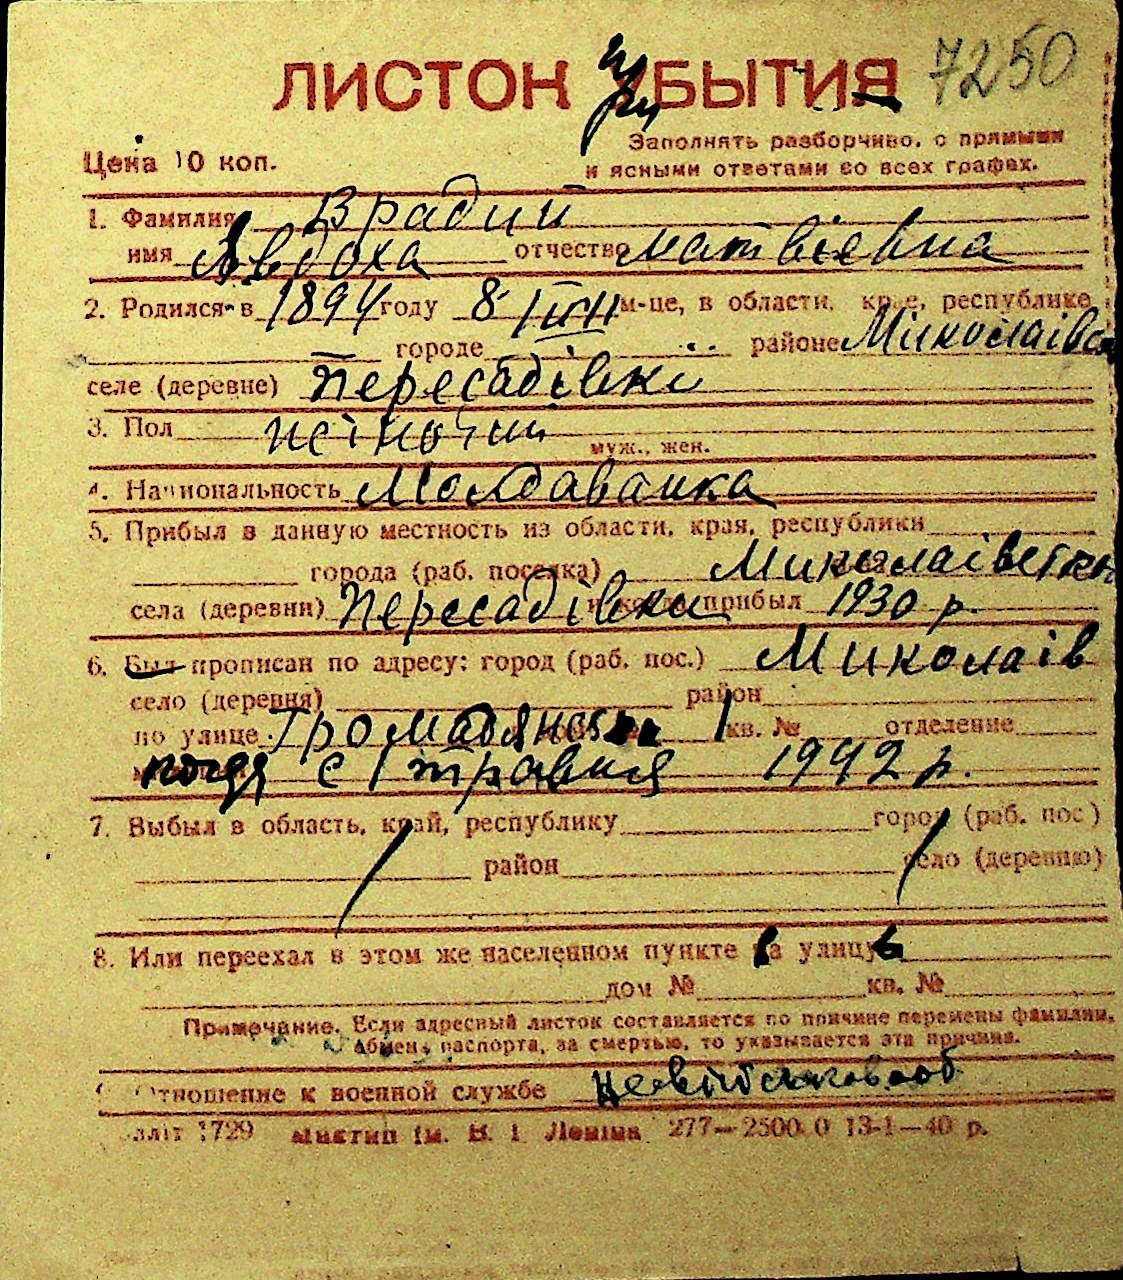 7250
ЛИСТОК при БЫТИЯ
Заполнять разборчиво, с прямыми
Цена 10 коп. и ясными ответами во всех графах.
1. Фамилия Врадий
имя Авдоха отчество Матвієвна
2. Родился в 1894 году 8 м-це, в области, крае, республике
городе районе Миколаївсь
селе (деревне) Пересадівкі
3. Пол жіночий муж., жен.
4. Национальность Молдаванка
5. Прибыл в данную местность из области, края, республики
города (раб. поселка) Миколаївсько
села (деревни) Пересадівки прибыл 1930 р.
6. Был прописан по адресу: город (раб. пос.) Миколаїв
село (деревня) район
по улице Громадянська 1 кв. № отделение
с 1 травня 1942 р.
7. Выбыл в область, край, республику город (раб. пос)
район село (деревню)
8. Или переехал в этом же населенном пункте на улицу
дом № кв. №
Примечание. Если адресный листок составляется по причине перемены фамилии,
обмена паспорта, за смертью, то указывается эта причина.
Отношение к военной службе
1729 Миктип ім. В. І. Леніна 277—2500.0 13-1—40 р.